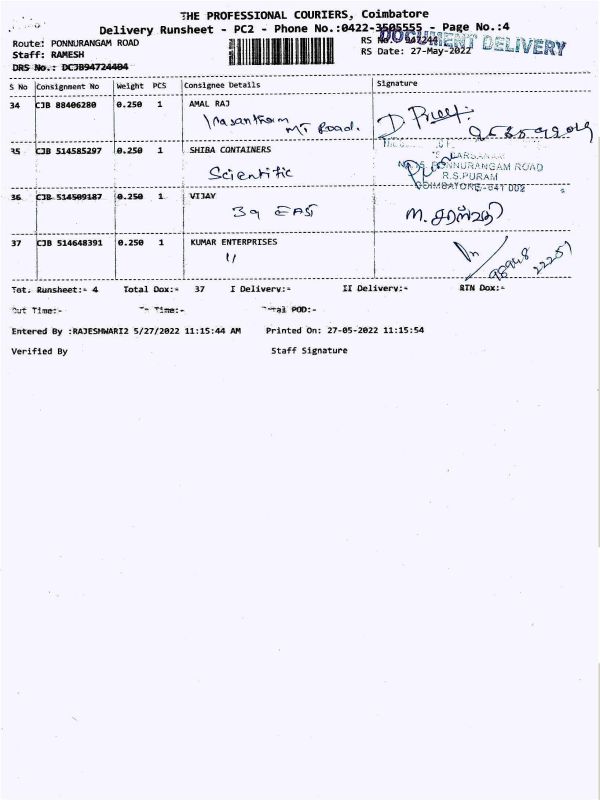 THE PROFESSIONAL COURIERS, Coimbatore
Delivery Runsheet - PC2 - Phone No.:0422-3505555 - Page No.:4
Route: PONNURANGAM ROAD
RS No.: 947244
DOCUMENT DELIVERY
Staff: RAMESH
RS Date: 27-May-2022
DRS No.: DCJB94724404
S No Consignment No Weight PCS Consignee Details Signature
34 CJB 88406280 0.250 1 AMAL RAJ
MT Road.
35 CJB 514585297 0.250 1 SHIBA CONTAINERS
Scientific
PONNURANGAM ROAD
R.S.PURAM
COIMBATORE-641 002
36 CJB 514509187 0.250 1 VIJAY
39 EAST
M. சரஸ்வதி
37 CJB 514648391 0.250 1 KUMAR ENTERPRISES
"
98948 22251
Tot. Runsheet:- 4 Total Dox:- 37 I Delivery:- II Delivery:- RTN Dox:-
Out Time:- In Time:- Total POD:-
Entered By :RAJESHWARI2 5/27/2022 11:15:44 AM Printed On: 27-05-2022 11:15:54
Verified By Staff Signature